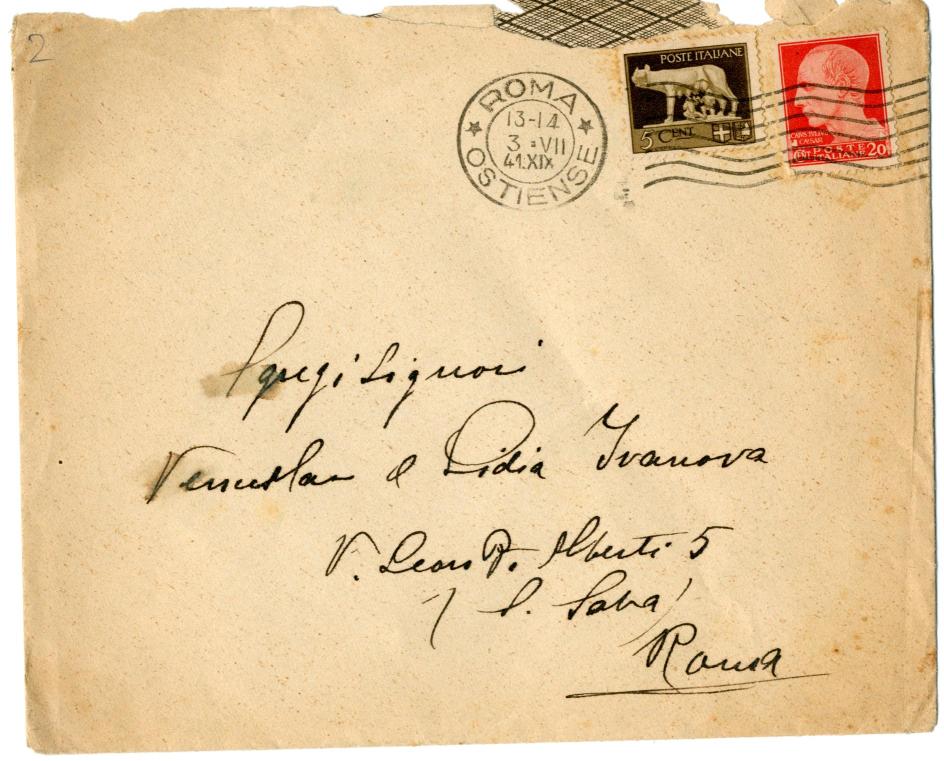 2
POSTE ITALIANE
5 CENT
POSTE
ITALIANE 20
ROMA
13-14
3 · VII
41.XIX
OSTIENSE
Egregi Signori
Venceslao e Lidia Ivanova
V. Leon B. Alberti 5
( S. Saba )
Roma